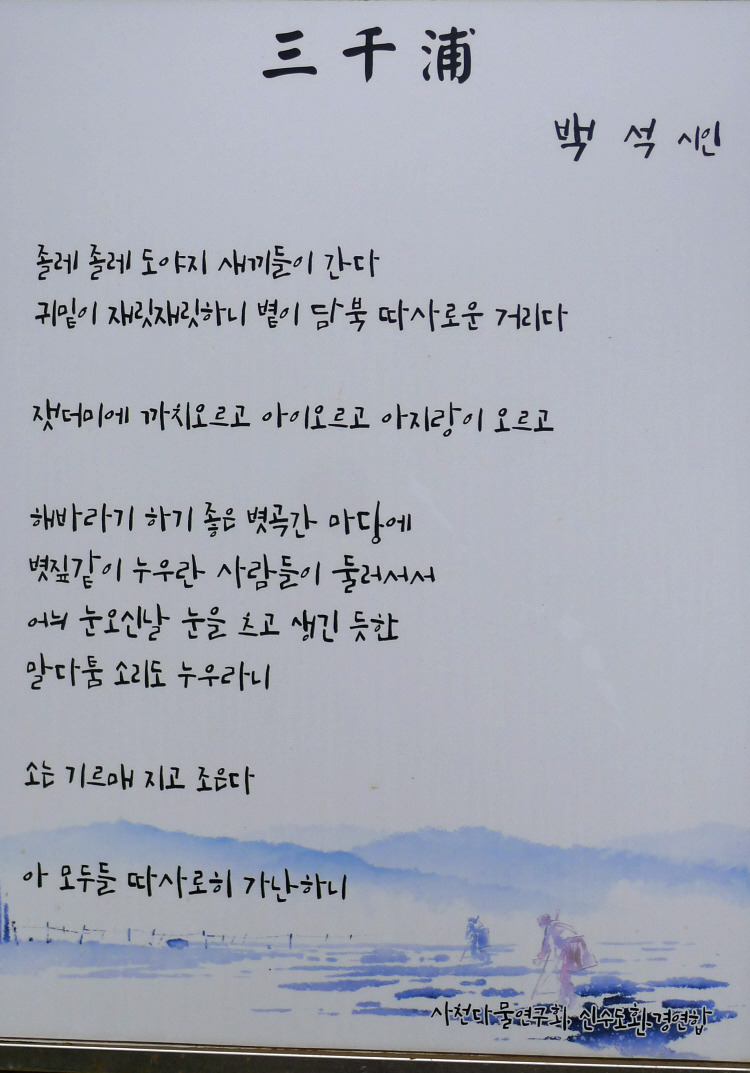 三千浦
백 석 시인
졸레 졸레 도야지 새끼들이 간다
귀밑이 재릿재릿하니 볕이 담북 따사로운 거리다
잿더미에 까치오르고 아이오르고 아지랑이 오르고
해바라기 하기 좋은 볏곡간 마당에
볏짚같이 누우란 사람들이 둘러서서
어늬 눈오신날 눈을 츠고 생긴 듯한
말다툼 소리도 누우라니
소는 기르매 지고 조은다
아 모두들 따사로히 가난하니
사천다물연구회, 신수도환경연합